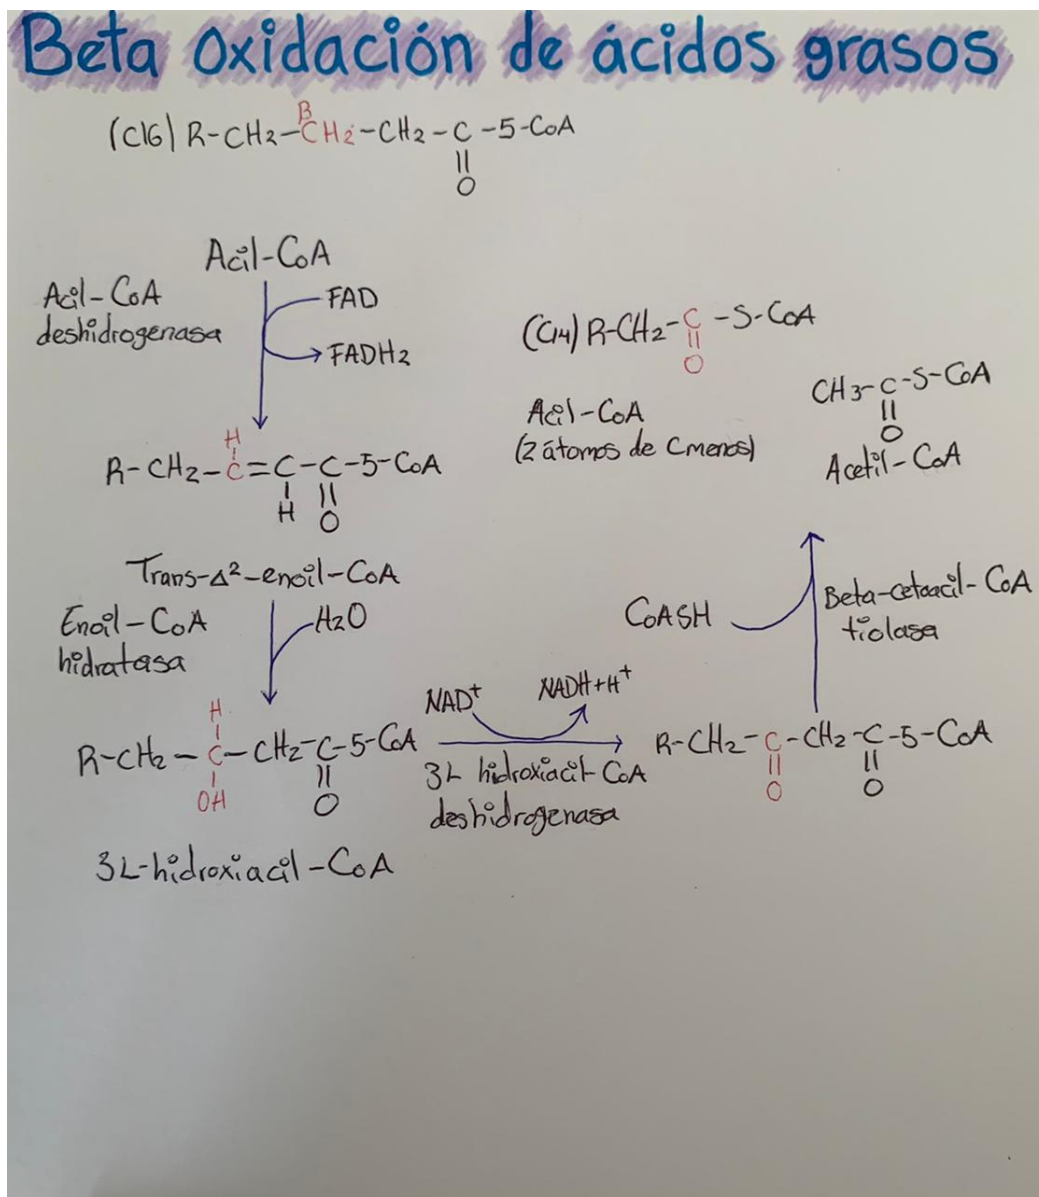 Beta oxidación de ácidos grasos
β
(C16) R-CH2-CH2-CH2-C-5-CoA
O
Acil-CoA
Acil-CoA
deshidrogenasa
FAD
FADH2
H
R-CH2-C=C-C-5-CoA
H O
Trans-Δ²-enoil-CoA
Enoil-CoA
hidratasa
H2O
H
R-CH2-C-CH2-C-5-CoA
OH O
3L-hidroxiacil-CoA
NAD+ NADH+H+
3L hidroxiacil-CoA
deshidrogenasa
R-CH2-C-CH2-C-5-CoA
O O
CoASH
Beta-cetoacil-CoA
tiolasa
(C14) R-CH2-C-S-CoA
O
Acil-CoA
(2 átomos de C menos)
CH3-C-S-CoA
O
Acetil-CoA